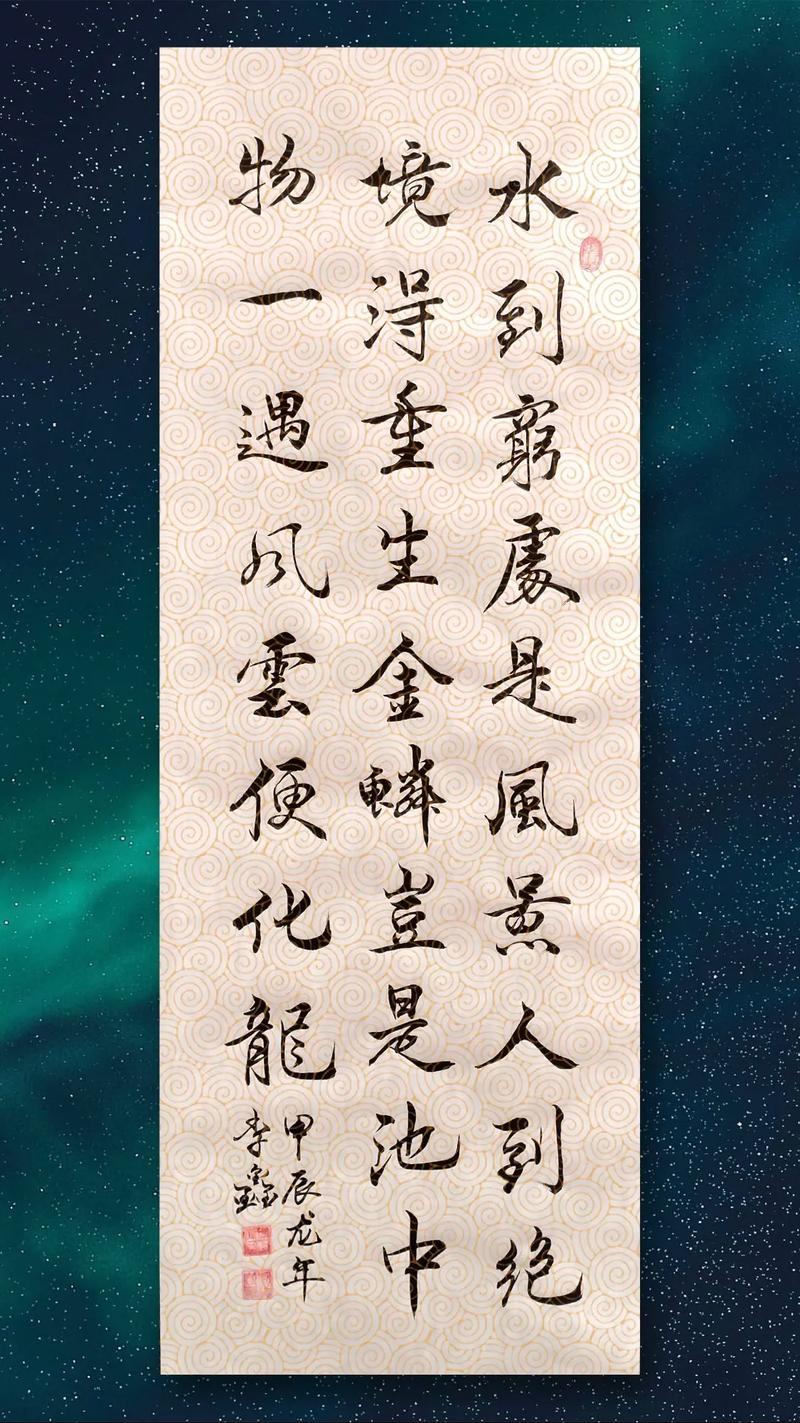 水到窮處是風景人到絕
境得重生金鳞豈是池中
物一遇风雲便化龍
甲辰龙年
李鑫